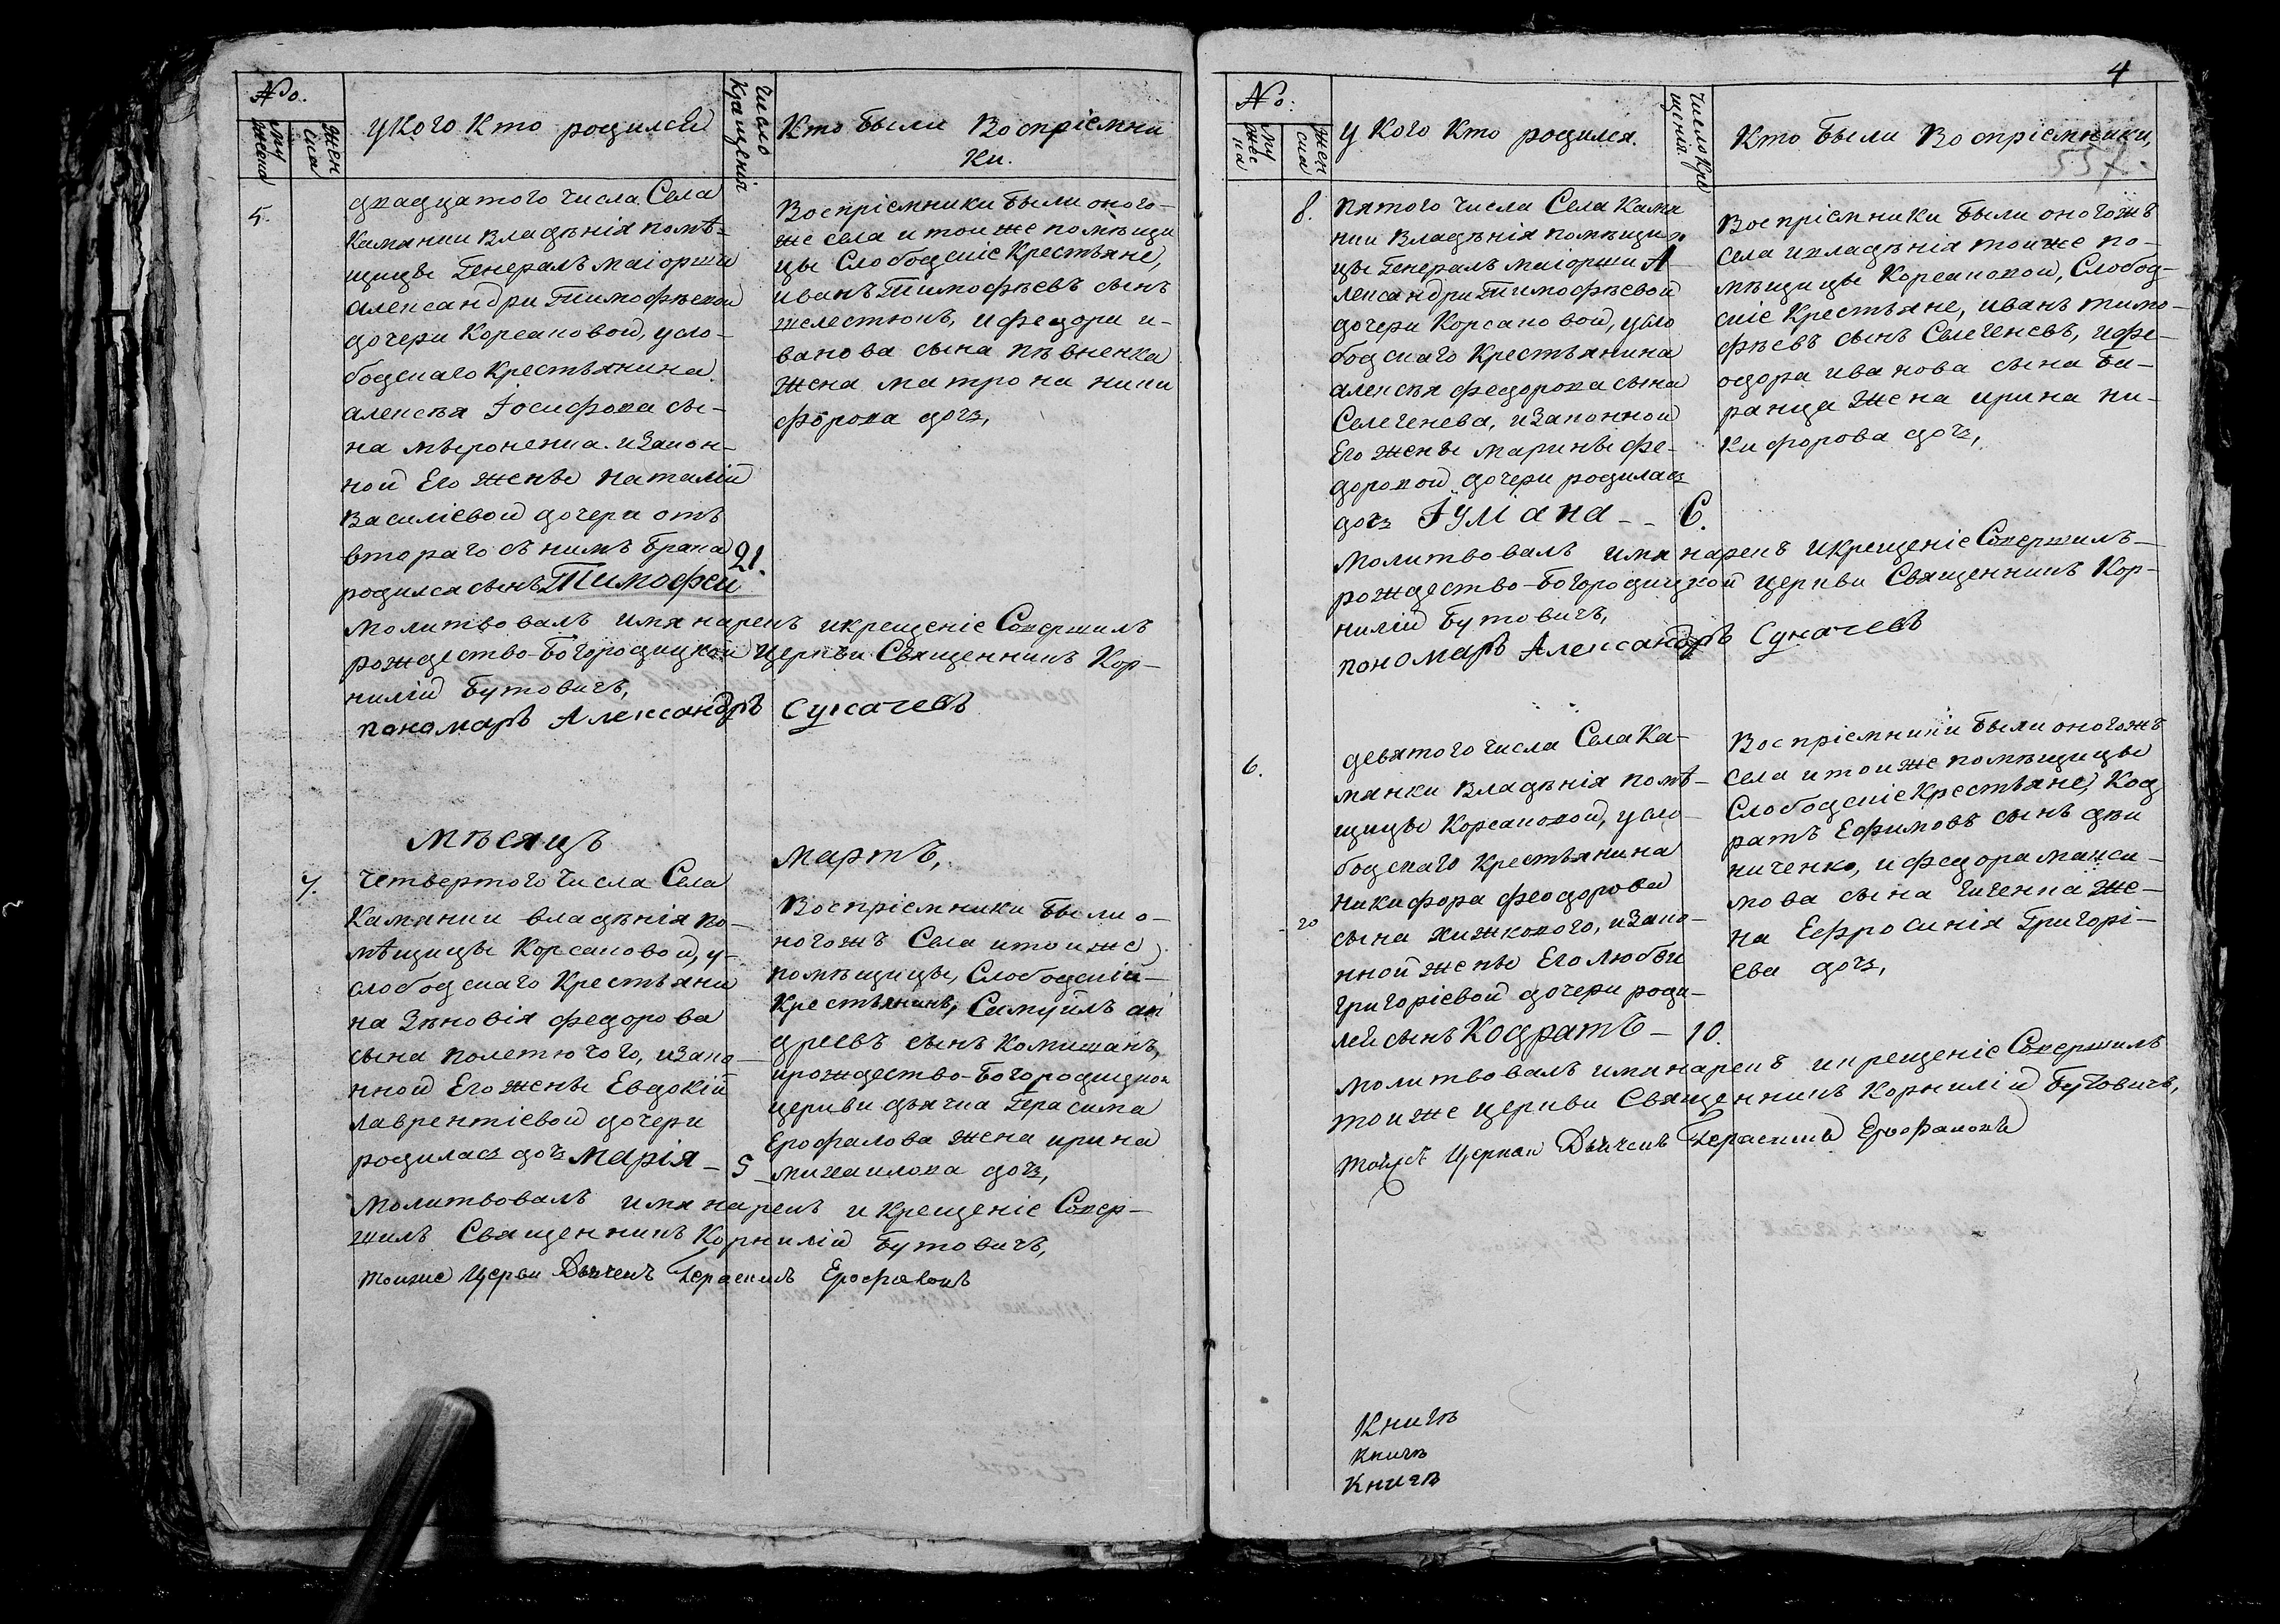 №.
Му
жеска
Жен
ска
у кого кто родился
Число
Крещенія
Кто были Воспріемни
ки.
5.
двадцатого числа Села
Каманки Владѣнія помѣ-
щицы Генералъ маіорши
Александри Тимофѣевой
дочери Корсаковой, у сло-
бодскаго Крестьянина
алексѣя Іосифова сы-
на мѣроненка. и Закон-
ной Его женѣ Наталіи
Василіевой дочери отъ
втораго съ нимъ брака
родился сынъ Тимофей
21.
Воспріемники были оного-
же села и тои же помѣщи
цы Слободскіе Крестьяне,
иванъ Тимофѣевъ сынъ
желестюкъ, и федори и-
ванова сына пѣвненка
жена матрона ники
форова дочь,
молитвовалъ имя нарекъ и крещеніе Совершилъ
рождество-Богородицкой Церкви Священникъ Кор-
нилій Бутовичъ,
пономарь Александръ Сукачевъ
Мѣсяцъ
Мартъ,
7.
четвертого числа Села
Каманки владѣнія по-
мѣщицы Корсаковой, у
слободскаго Крестьяни
на Зѣновія федорова
сына полетючого, и Зако-
нной Его женѣ Евдокіи
лаврентіевой дочери
родилась дочь Марія-
5
Воспріемники были о-
ногожъ Села и тои же
помѣщицы, Слободскій
Крестьянинъ, Самуилъ ан
дреевъ сынъ Комишанъ,
и рождество-Богородицкои
церкви дьячка Герасима
Ерофалова жена ирина
михаилова дочь,
Молитвовалъ имя нарекъ и Крещеніе Совер-
шилъ Священникъ Корнилій Бутовичъ,
тоиже Церкви Дьячекъ Герасимъ Ерофаловъ
4
№:
Му
жес
ка
Жен
ска
у кого кто родился.
Число Кре
щенія.
Кто были Воспріемники,
557.
8.
пятого числа Села Кама
нки Владѣнія помѣщи
цы Генералъ маіорши А
лександри Тимофѣевой
дочери Корсаковой, у сло
бодскаго Крестьянина
алексѣя федорова сына
Селегенева, и Законной
Его женѣ Маринѣ фе-
доровой дочери родилась
дочь Іуліана - -
6.
Воспріемники были оногожъ
села и владѣнія тоиже по-
мѣщицы Корсаковой, Слобод-
скіе Крестьяне, иванъ тимо-
фѣевъ сынъ Селегеневъ, и фе-
одора иванова сына Ба-
ранца жена ирина ни-
кифорова дочь,
Молитвовалъ имя нарекъ и крещеніе Совершилъ
рождество-Богородицкой церкви Священникъ Кор-
нилій Бутовичъ,
пономарь Александръ Сукачевъ
6.
девятого числа Села Ка-
манки Владѣнія помѣ-
щицы Корсаковой, у сло
бодскаго Крестьянина
никифора феодорова
сына хижкового, и Зако-
нной женѣ Его Любви
григоріевой дочери роди-
лся сынъ Кодратъ -
10.
20
Воспріемники были оногожъ
села и тои же помѣщицы
Слободскіе Крестьяне, Код
ратъ Ефимовъ сынъ дѣи
ниченко, и федора макси-
мова сына гиченка же-
на Ефросинія Григорі-
ева дочь,
молитвовалъ имя нарекъ и крещеніе Совершилъ
тоиже церкви Священникъ Корнилій Бутовичъ,
тойже Церкви Дьячекъ Герасимъ Ерофаловъ
Книгъ
книгъ
Книгъ